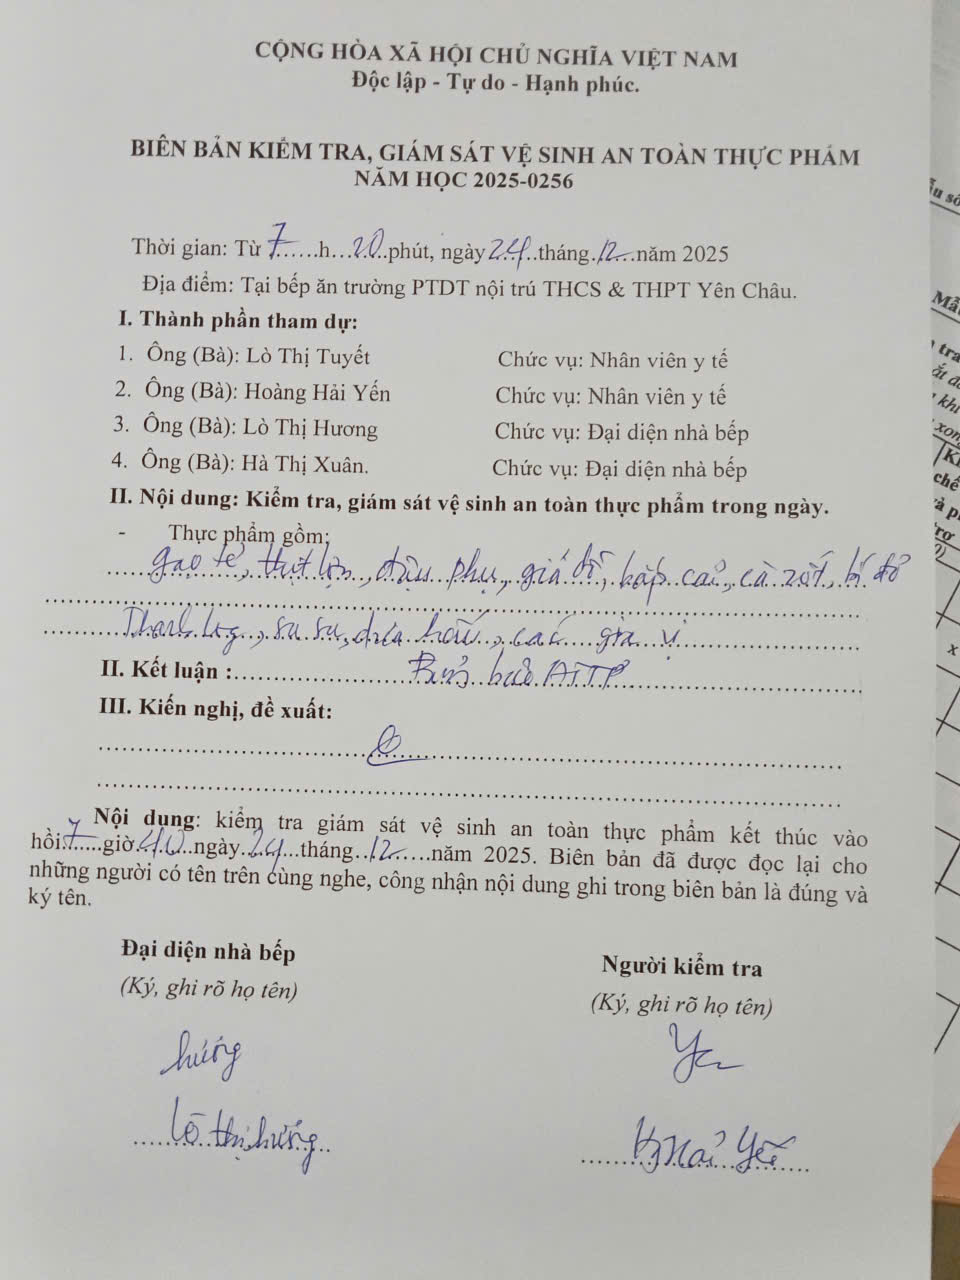 CỘNG HÒA XÃ HỘI CHỦ NGHĨA VIỆT NAM
Độc lập - Tự do - Hạnh phúc.
BIÊN BẢN KIỂM TRA, GIÁM SÁT VỆ SINH AN TOÀN THỰC PHẨM
NĂM HỌC 2025-0256
Thời gian: Từ 7......h...20..phút, ngày 24..tháng.12...năm 2025
Địa điểm: Tại bếp ăn trường PTDT nội trú THCS & THPT Yên Châu.
I. Thành phần tham dự:
1. Ông (Bà): Lò Thị Tuyết Chức vụ: Nhân viên y tế
2. Ông (Bà): Hoàng Hải Yến Chức vụ: Nhân viên y tế
3. Ông (Bà): Lò Thị Hương Chức vụ: Đại diện nhà bếp
4. Ông (Bà): Hà Thị Xuân. Chức vụ: Đại diện nhà bếp
II. Nội dung: Kiểm tra, giám sát vệ sinh an toàn thực phẩm trong ngày.
- Thực phẩm gồm:
gạo tẻ, thịt lợn, đậu phụ, giá đỗ, bắp cải, cà rốt, bí đỏ
Thanh long, su su, dưa hấu, các gia vị
II. Kết luận :.......... Đảm bảo ATTP
III. Kiến nghị, đề xuất:
Nội dung: kiểm tra giám sát vệ sinh an toàn thực phẩm kết thúc vào
hồi 7.....giờ.40..ngày.24...tháng..12.....năm 2025. Biên bản đã được đọc lại cho
những người có tên trên cùng nghe, công nhận nội dung ghi trong biên bản là đúng và
ký tên.
Đại diện nhà bếp Người kiểm tra
(Ký, ghi rõ họ tên) (Ký, ghi rõ họ tên)
hương
Lò thị hương Hg Hải Yến